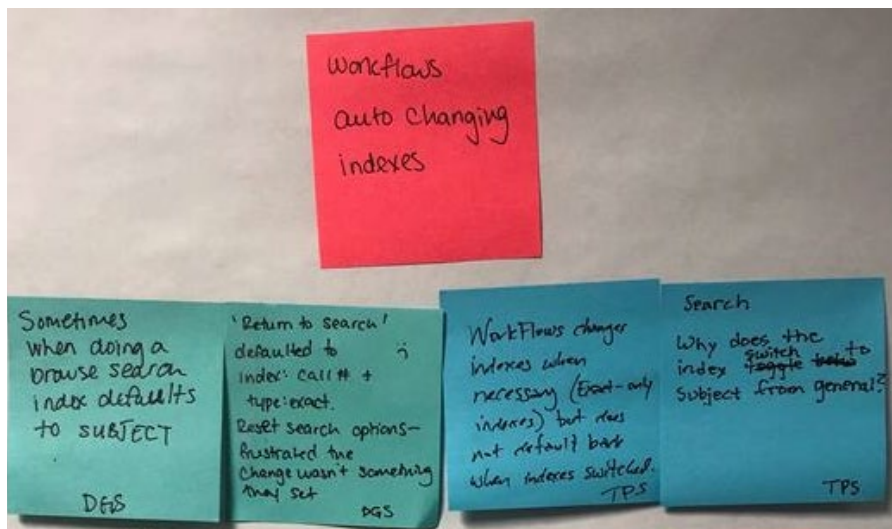 Workflows
auto changing
indexes
Sometimes
when doing a
browse search
index defaults
to SUBJECT
DGS
'Return to search'
defaulted to
index: call # +
type: exact.
Reset search options-
frustrated the
change wasn't something
they set
DGS
WorkFlows changes
indexes when
necessary (Exact-only
indexes) but does
not default back
when indexes switched.
TPS
Search
Why does the
index switch to
subject from general?
TPS